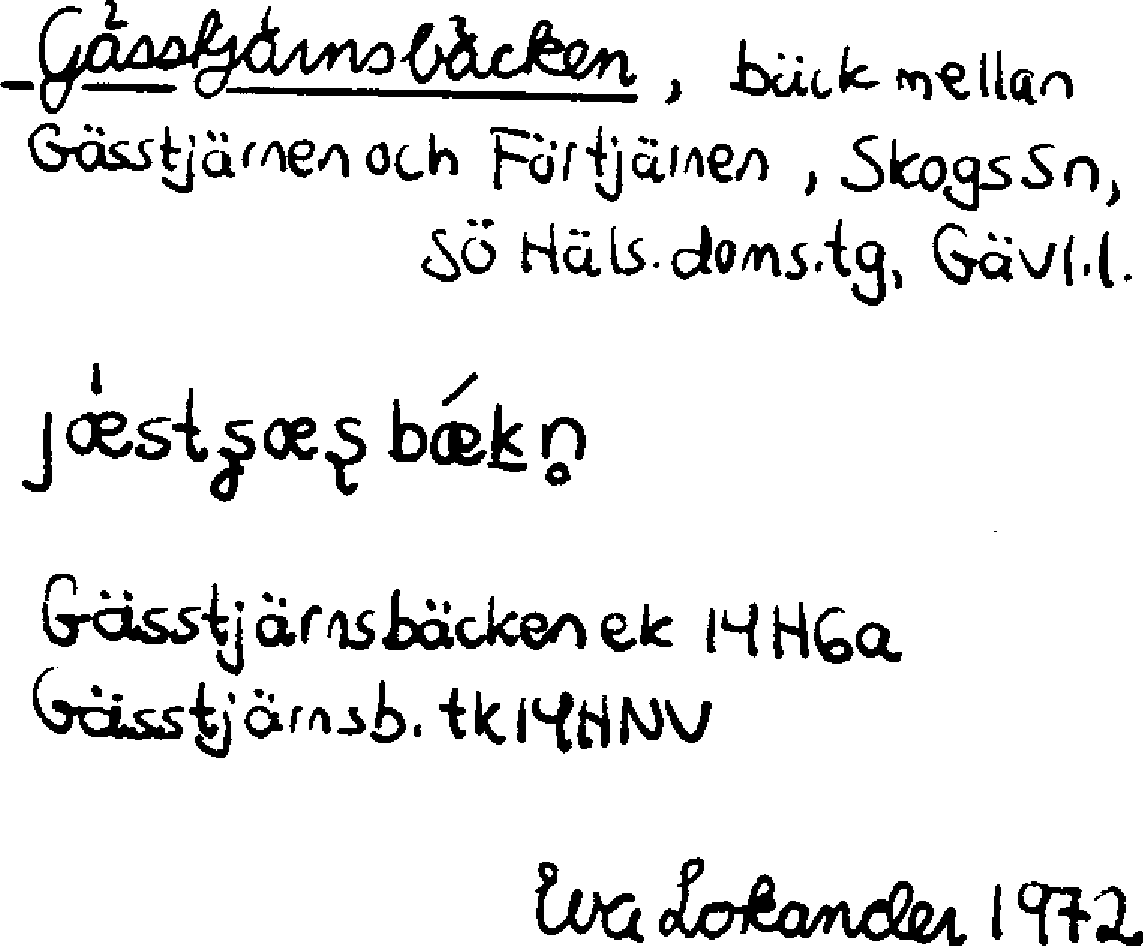 Gässtjärnsbäcken, bäck mellan
Gässtjärnen och Förtjärnen, Skogs Sn,
SÖ Häls. doms.tg, Gävl.l.
Gässtjärnsbäcken ek 14H6a
Gässtjärnsb. tk14HNV
Eva Lokander 1972